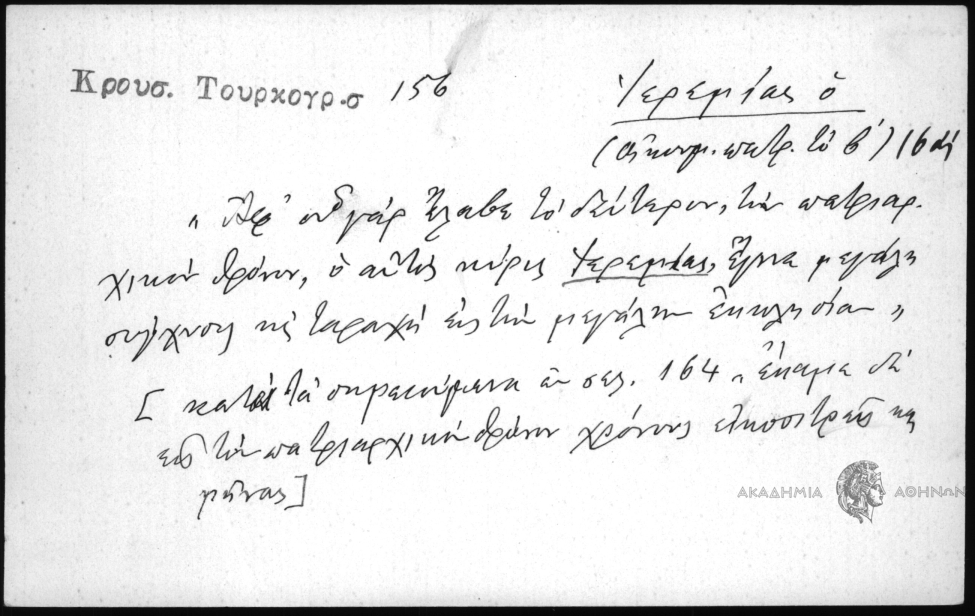 Κρουσ. Τουρκογρ.σ 156
Ἱερεμίας ὁ
(οἰκουμ. πατρ. τὸ β΄) 16 αἰ
„ Ἀφ' οὗ γάρ ἔλαβε τὸ δεύτερον, τὸν πατριαρ-
χικὸν θρόνον, ὁ αὐτὸς κύρις Ἱερεμίας, ἔγινε μεγάλη
σύγχυσις κὲ ταραχὴ εἰς τὴν μεγάλην ἐκκλησίαν „
[ κατὰ τὰ σημειούμενα ἐν σελ. 164 „ ἔκαμε δὲ
εἰς τὸν πατριαρχικὸν θρόνον χρόνους εἰκοσιτρεῖς κὲ
μῆνας]
ΑΚΑΔΗΜΙΑ ΑΘΗΝΩΝ